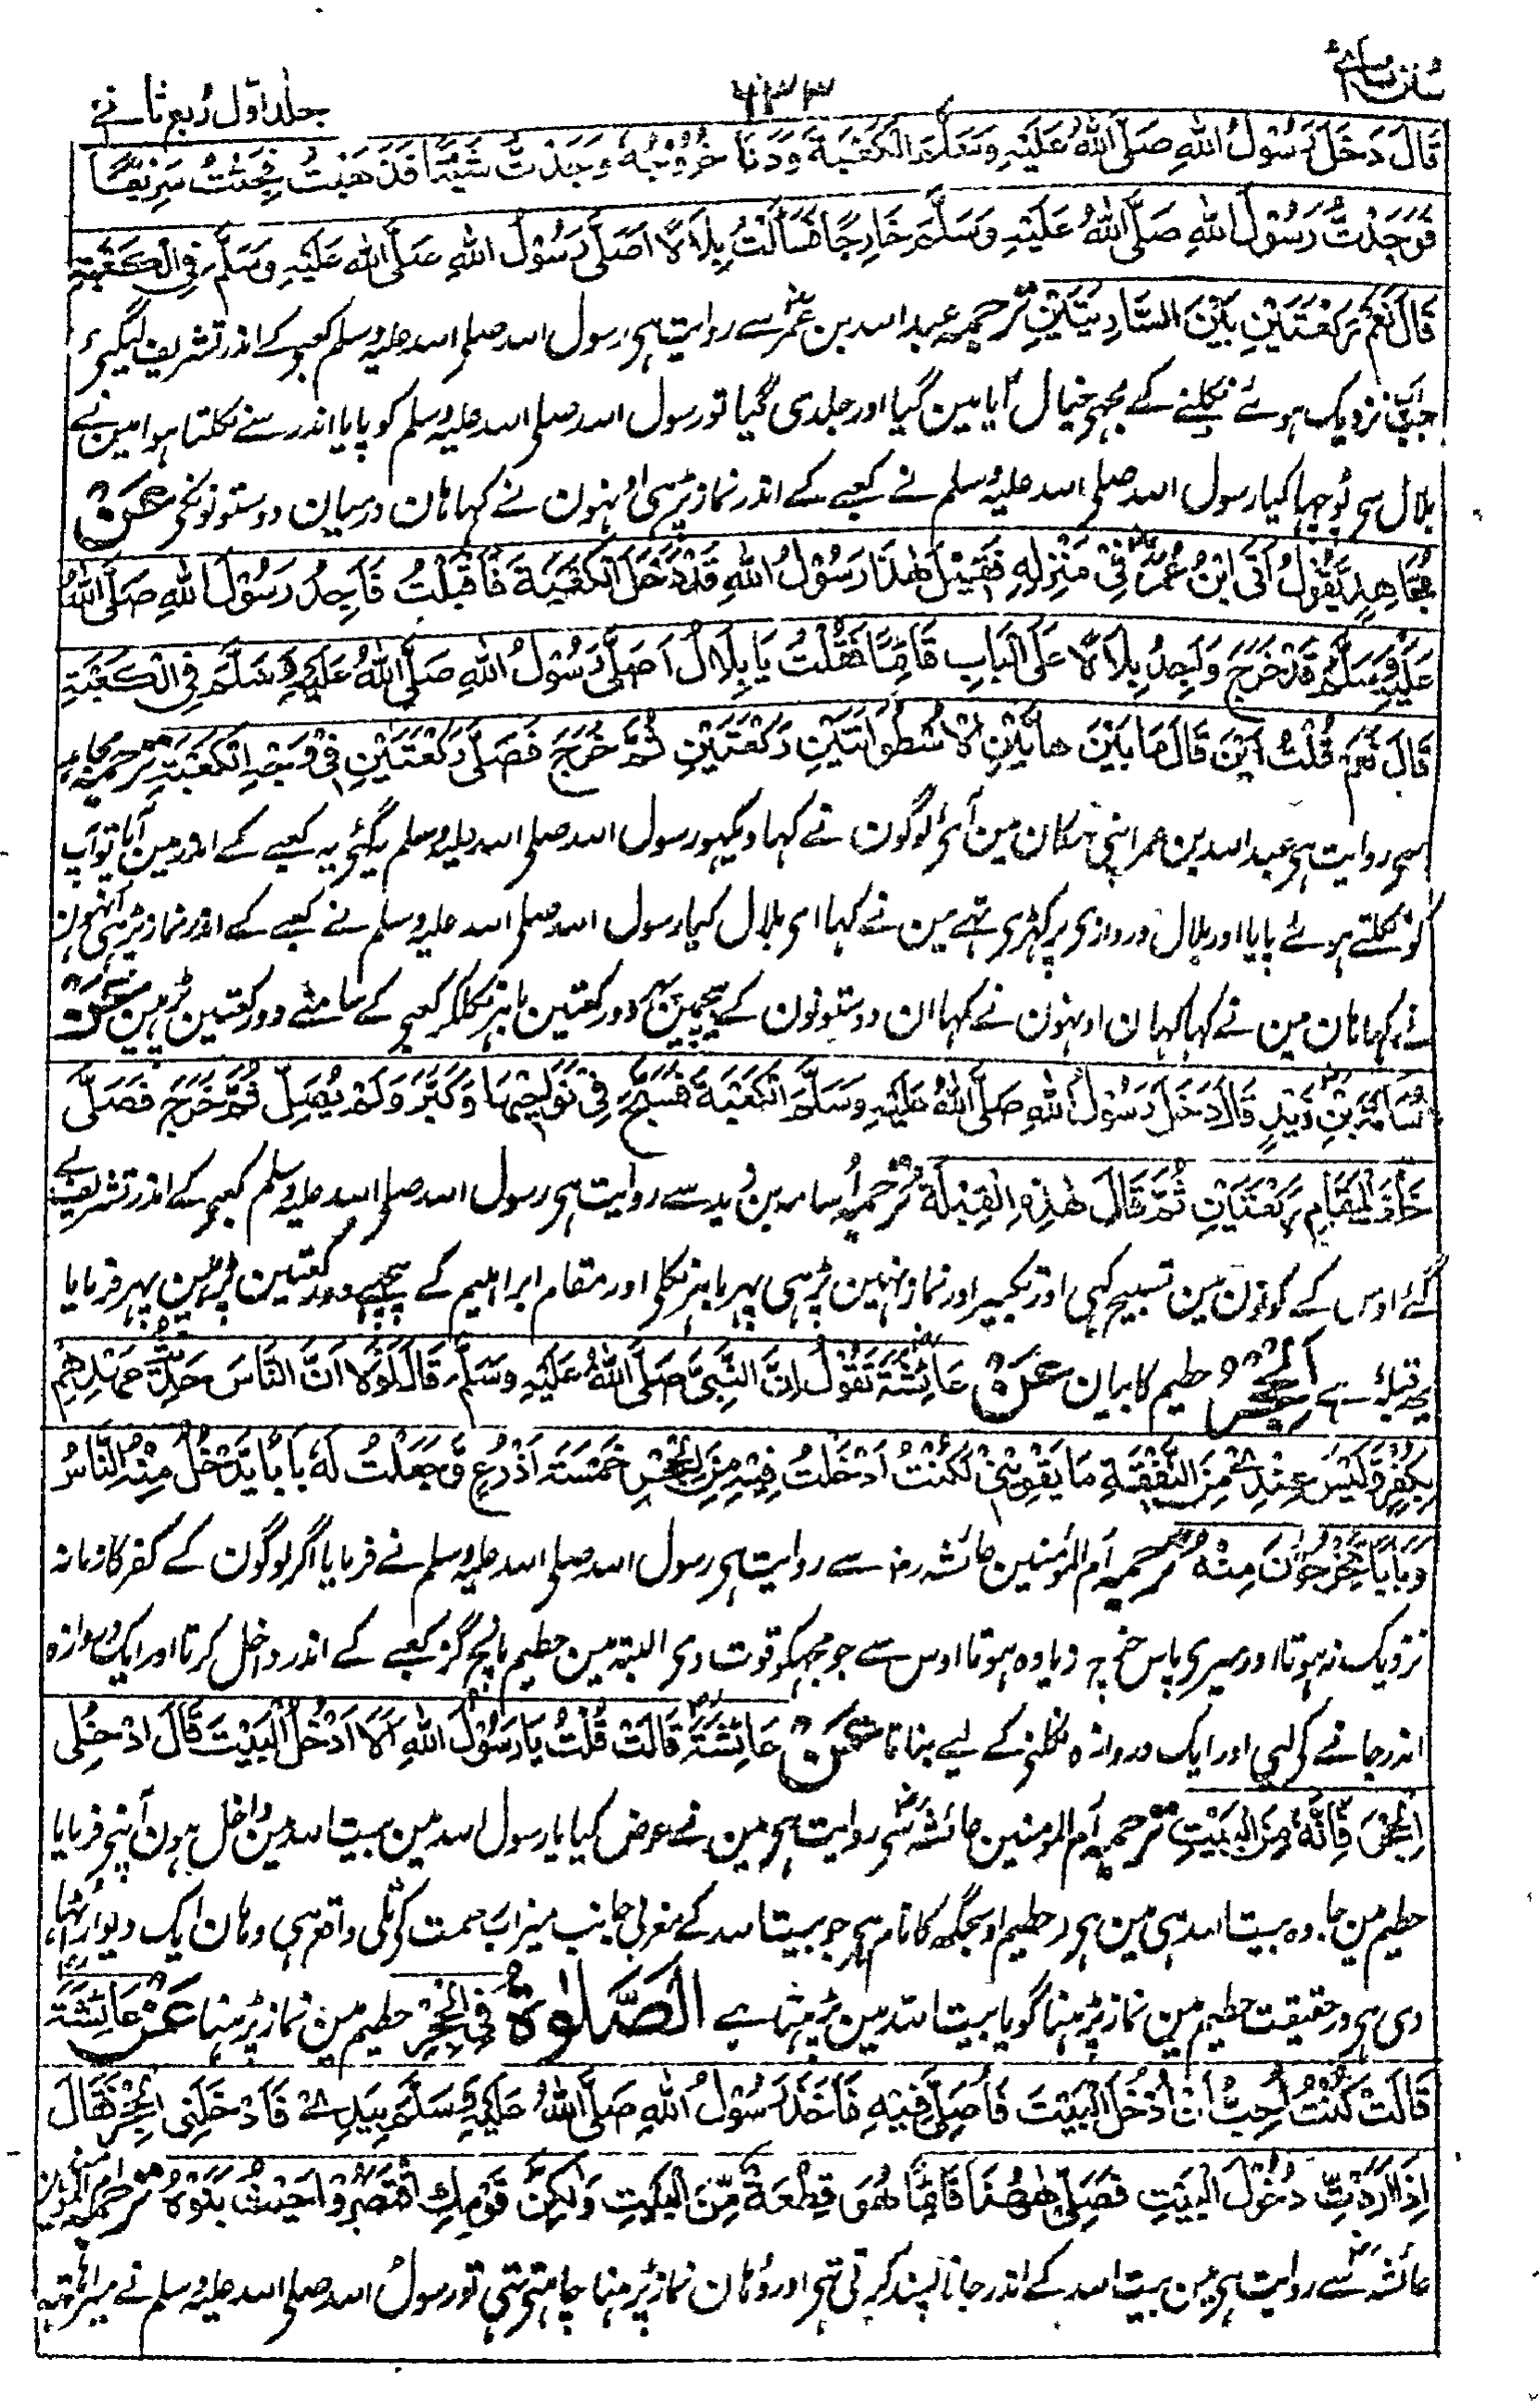 سنن نسائی
۶۳۳
جلد اول ربع ثانے
قَالَ دَخَلَ رَسُوْلُ اللهِ صَلَّى اللهُ عَلَيْهِ وَسَلَّمَ الْكَعْبَةَ وَدَنَا خُرُوْجُهُ وَوَجَدْتُ شَيْئًا فَذَهَبْتُ فَجِئْتُ سَرِيْعًا
فَوَجَدْتُ رَسُوْلَ اللهِ صَلَّى اللهُ عَلَيْهِ وَسَلَّمَ خَارِجًا فَسَأَلْتُ بِلَالًا اَصَلَّى رَسُوْلُ اللهِ صَلَّى اللهُ عَلَيْهِ وَسَلَّمَ فِي الْكَعْبَةِ
قَالَ نَعَمْ رَكْعَتَيْنِ بَيْنَ السَّارِيَتَيْنِ ترجمہ عبد اللہ بن عمرؓ سے روایت ہی رسول اللہ صلی اللہ علیہ وسلم کعبے کے اندر تشریف لیگئے
جب آپ نزدیک ہوئے نکلنے کے مجھے خیال آیا مین گیا اور جلدی گیا تو رسول اللہ صلی اللہ علیہ وسلم کو پایا اندر سے نکلتا ہوا مین نے
بلال سے پوچہا کیا رسول اللہ صلی اللہ علیہ وسلم نے کعبے کے اندر نماز پڑہی اونہون نے کہا ہان درمیان دو ستونونکے عَنْ
مُجَاهِدٍ يَقُوْلُ اُتِيَ ابْنُ عُمَرَ فِيْ مَنْزِلِهٖ فَقِيْلَ هٰذَا رَسُوْلُ اللهِ قَدْ دَخَلَ الْكَعْبَةَ فَاَقْبَلْتُ فَاَجِدُ رَسُوْلَ اللهِ صَلَّى اللهُ
عَلَيْهِ وَسَلَّمَ قَدْ خَرَجَ وَاَجِدُ بِلَالًا عَلَى الْبَابِ قَائِمًا فَقُلْتُ يَا بِلَالُ اَصَلَّى رَسُوْلُ اللهِ صَلَّى اللهُ عَلَيْهِ وَسَلَّمَ فِي الْكَعْبَةِ
قَالَ نَعَمْ قُلْتُ اَيْنَ قَالَ مَا بَيْنَ هَاتَيْنِ الْاُسْطُوَانَتَيْنِ رَكْعَتَيْنِ ثُمَّ خَرَجَ فَصَلَّى رَكْعَتَيْنِ فِيْ وَجْهِ الْكَعْبَةِ ترجمہ مجاہد
سے روایت ہی عبد اللہ بن عمر اپنی مکان مین آئے لوگون نے کہا دیکہو رسول اللہ صلی اللہ علیہ وسلم گئے یہ کعبے کے اندر مین آیا تو آپ
کو نکلتے ہوئے پایا اور بلال دروازی پر کہڑی تہے مین نے کہا ای بلال کیا رسول اللہ صلی اللہ علیہ وسلم نے کعبے کے اندر نماز پڑہی اُنہون
نے کہا ہان مین نے کہا کہان اونہون نے کہا ان دو ستونون کے بیچمین پہر دو رکعتین باہر نکلکر کعبے کے سامنے دو رکعتین پڑہین عَنْ
اُسَامَةَ بْنِ زَيْدٍ قَالَ دَخَلَ رَسُوْلُ اللهِ صَلَّى اللهُ عَلَيْهِ وَسَلَّمَ الْكَعْبَةَ فَسَبَّحَ فِيْ نَوَاحِيْهَا وَكَبَّرَ وَلَمْ يُصَلِّ ثُمَّ خَرَجَ فَصَلَّى
خَلْفَ الْمَقَامِ رَكْعَتَيْنِ ثُمَّ قَالَ هٰذِهِ الْقِبْلَةُ ترجمہ اُسامہ بن زید سے روایت ہی رسول اللہ صلی اللہ علیہ وسلم کعبے کے اندر تشریف لے
گئے اوس کے کونون مین تسبیح کہی اور تکبیر اور نماز نہین پڑہی پہر باہر نکلے اور مقام ابراہیم کے پیچہے دو رکعتین پڑہین پہر فرمایا
یہ قبلہ ہے اَلْحِجْرُ حطیم کا بیان عَنْ عَائِشَةَ تَقُوْلُ اِنَّ النَّبِيَّ صَلَّى اللهُ عَلَيْهِ وَسَلَّمَ قَالَ لَوْلَا اَنَّ النَّاسَ حَدِيْثٌ عَهْدُهُمْ
بِكُفْرٍ وَلَيْسَ عِنْدِيْ مِنَ النَّفَقَةِ مَا يُقَوِّيْنِيْ لَكُنْتُ اَدْخَلْتُ فِيْهِ مِنَ الْحِجْرِ خَمْسَةَ اَذْرُعٍ وَجَعَلْتُ لَهٗ بَابًا يَدْخُلُ مِنْهُ النَّاسُ
وَبَابًا يَخْرُجُوْنَ مِنْهُ ترجمہ اُم المؤمنین عائشہ رض سے روایت ہی رسول اللہ صلی اللہ علیہ وسلم نے فرمایا اگر لوگون کے کفر کا زمانہ
نزدیک نہ ہوتا اور میری پاس خرچ زیادہ ہوتا اوس سے جو مجہکو قوت دی البتہ مین حطیم پانچ گز کعبے کے اندر داخل کرتا اور ایک دروازہ
اندر جانے کو لیی اور ایک دروازہ نکلنے کے لیے بناتا عَنْ عَائِشَةَ قَالَتْ قُلْتُ يَا رَسُوْلَ اللهِ اَلَا اَدْخُلُ الْبَيْتَ قَالَ ادْخُلِي
الْحِجْرَ فَاِنَّهٗ مِنَ الْبَيْتِ ترجمہ اُم المومنین عائشہؓ سے روایت ہی مین نے عرض کیا یا رسول اللہ مین بیت اللہ مین داخل ہون آپنے فرمایا
حطیم مین جا وہ بیت اللہ ہی مین ہی ر حطیم اوسجگہ کا نام ہی جو بیت اللہ کے مغربی جانب میزاب سمت کو نلی واقع ہی وہان ایک دیوار اُٹہا
دی ہی درحقیقت حطیم مین نماز پڑہنا گویا بیت اللہ مین پڑہنا ہے الصَّلٰوةُ فِي الْحِجْرِ حطیم مین نماز پڑہنا عَنْ عَائِشَةَ
قَالَتْ كُنْتُ اُحِبُّ اَنْ اَدْخُلَ الْبَيْتَ فَاُصَلِّيَ فِيْهِ فَاَخَذَ رَسُوْلُ اللهِ صَلَّى اللهُ عَلَيْهِ وَسَلَّمَ بِيَدِيْ فَاَدْخَلَنِي الْحِجْرَ فَقَالَ
اِذَا اَرَدْتِ دُخُوْلَ الْبَيْتِ فَصَلِّيْ هٰهُنَا فَاِنَّمَا هُوَ قِطْعَةٌ مِنَ الْبَيْتِ وَلٰكِنَّ قَوْمَكِ اقْتَصَرُوْا حَيْثُ بَنَوْهُ ترجمہ ام المومنین
عائشہؓ سے روایت ہی مین بیت اللہ کے اندر جانا پسند کرتی تہی اور وہان نماز پڑہنا چاہتی تہی تو رسول اللہ صلی اللہ علیہ وسلم نے میرا ہاتہہ